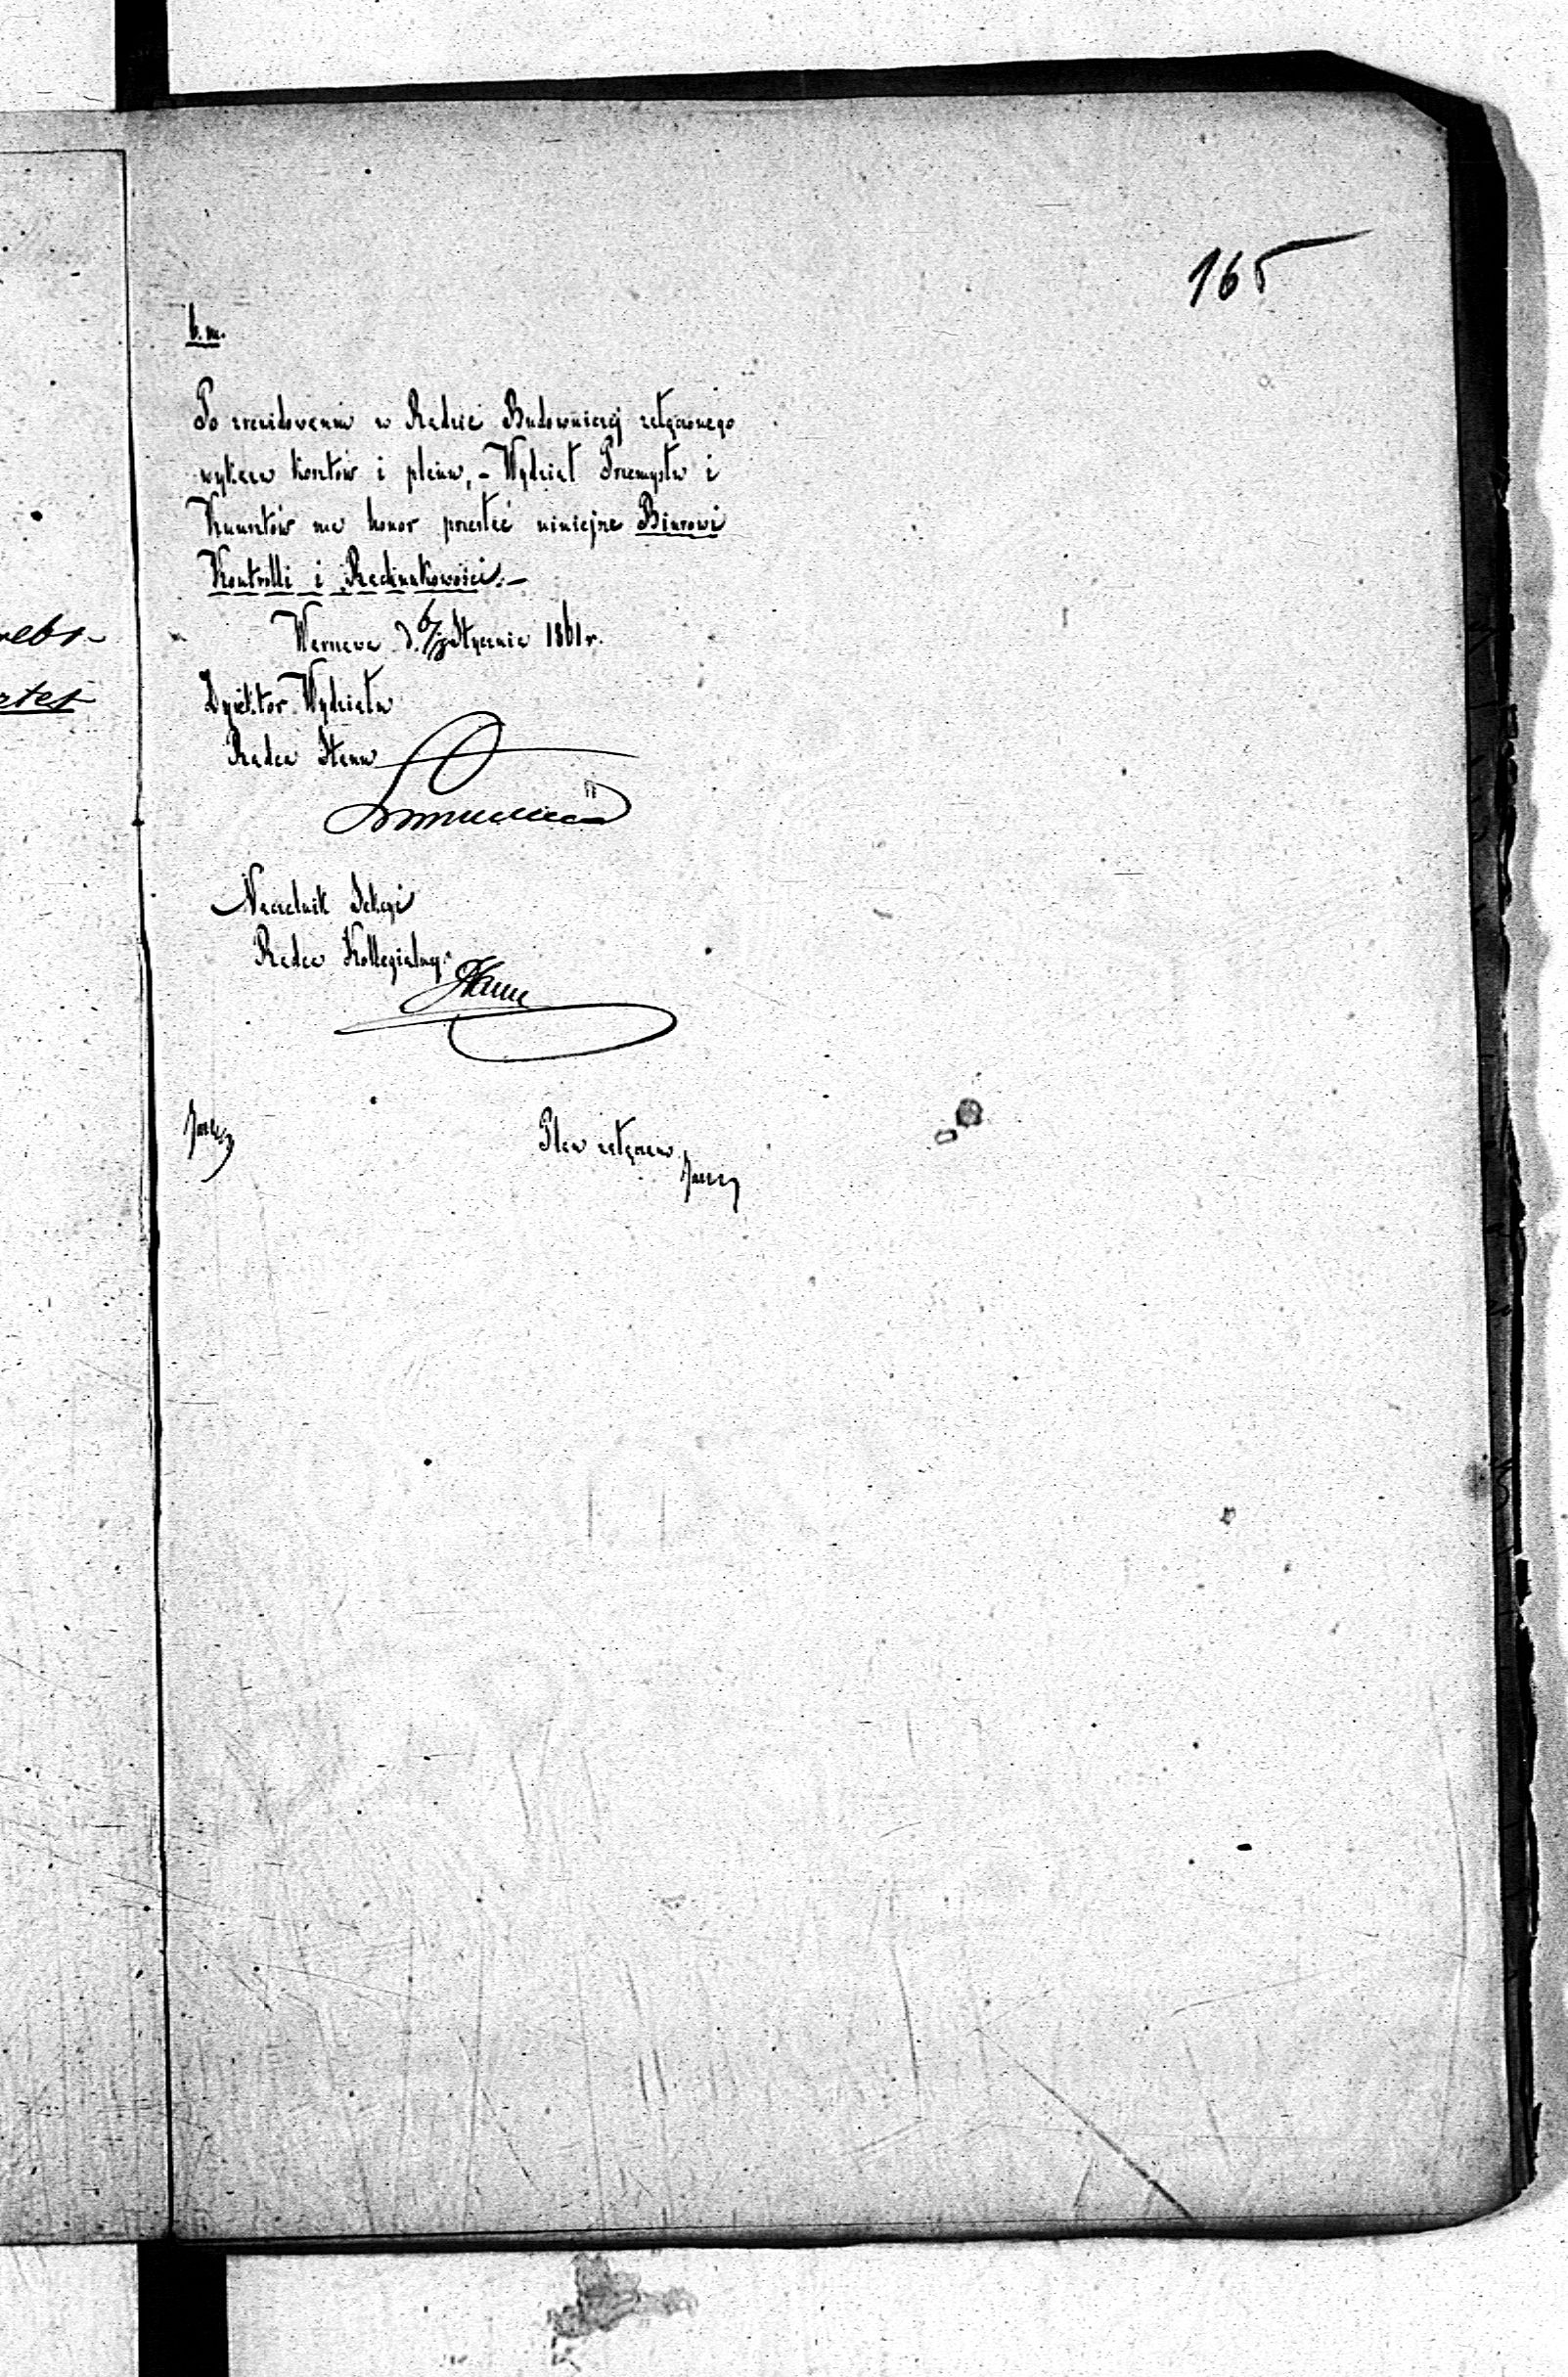 165
b. m.
Po zrewidowaniu w Radzie Budowniczéj załączonego
wykazu kosztów i planu, - Wydział Przemysłu i
Kunsztów ma honor przesłać niniejsze Biurowi
Kontrolli i Rachunkowości. -
Warszawa d. Stycznia 1861 r.
Dyrektor Wydziału
Radca Stanu
Naczelnik Sekcyi
Radca Kollegialny
Plan załącza